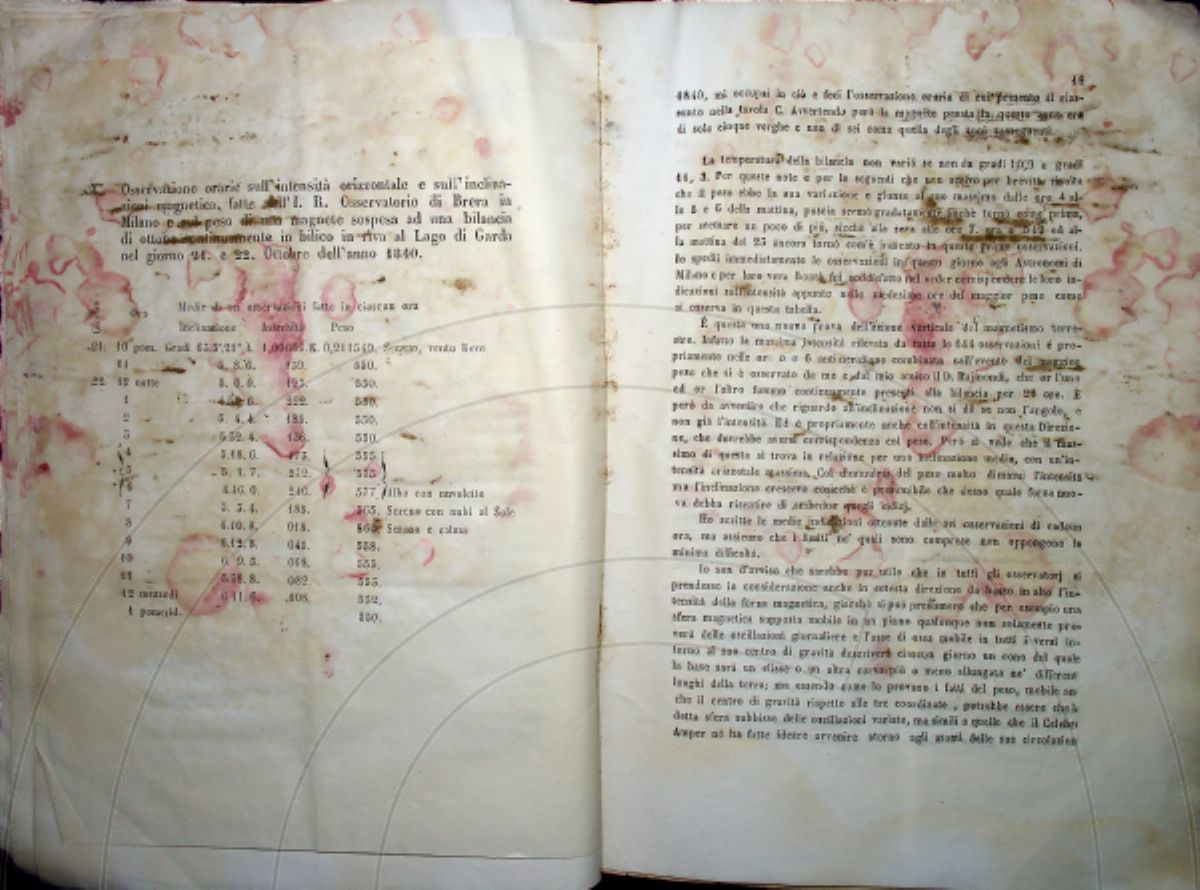 Osservazione orarie sull'intensità orizzontale e sull'inclina-
zioni magnetica, fatte dall'I. R. Osservatorio di Brera in
Milano e sul peso di una magnete sospesa ad una bilancia
di ottone continuamente in bilico in riva al Lago di Garda
nel giorno 21. e 22. Ottobre dell'anno 1840.
Giorno Ora Medie di sei osservazioni fatte in ciascun ora
Inclinazione Intensità Peso
21. 10 pom. Gradi Sereno, vento lieve
11 5. 8. 6. 550.
22. 12 notte 550.
1 222. 550.
2 5. 4. 4. 550.
3 5.52. 4. 436. 550.
4 555.
5 5. 4. 7. 272. 575
4.16. 0. 246. 577. Alba con nuvolette
7 5. 5. 4. 565. Sereno con nubi al Sole
8 6.10. 8. 018. 560. Sereno e calma
9 6.12. 8. 045. 558.
10 6. 9. 5. 068. 555.
11 5.58. 8. 082. 555.
12 mezzodì 6.11. 6. 108. 552.
1 pomerid. 550.
1840, mi occupai in ciò e feci l'osservazione oraria di cui presento il rias-
sunto nella tavola C. Avvertendo però la magnete pesata in questo anno era
di sole cinque verghe e non di sei come quella degli anni susseguenti.
La temperatura della bilancia non variò se non da gradi 10,9 a gradi
11, 3. Per queste note e per le seguenti che non scrivo per brevità risulta
che il peso ebbe la sua variazione e giunse al suo massimo dalle ore 4 al-
la 5 e 6 della mattina, poscia scemò gradatamente finchè tornò come prima,
per scemare un poco di più, sicchè alla sera alle ore 7. era a 542 ed al-
la mattina del 23 ancora tornò com'è indicato in queste prime osservazioni.
Io spedì immediatamente le osservazioni in questo giorno agli Astronomi di
Milano e per loro vera bontà fui soddisfatto nel veder corrispondere le loro in-
dicazioni sull'intensità appunto nelle medesime ore del maggior peso come
si osserva in questa tabella.
È questa una nuova prova dell'azione verticale del magnetismo terre-
stre. Infatto la massima intensità rilevata da tutte le 144 osservazioni è pro-
priamente nelle or. 5 e 6 antimeridiane combinata coll'evento del maggior
peso che si è osservato da me e dal mio amico il D. che or l'uno
ed or l'altro fummo continuamente presenti alla bilancia per 26 ore. È
però da avvertire che riguardo all'inclinazione non si dà se non l'angolo, e
non già l'intensità. Ed è propriamente anche coll'intensità in questa Direzio-
ne, che dovrebbe avere corrispondenza col peso. Però si vede che il mas-
simo di questo si trova in relazione per una inclinazione media, con un'in-
tensità orizzontale massima. Col diminuire del peso molto diminuì l'intensità
ma l'inclinazione cresceva cosicchè è presumibile che desso quale forza nuo-
va debba risentire di ambedue quegli indizj.
Ho scritte le medie indicazioni ottenute dalle sei osservazioni di cadaun
ora, ma assicuro che i limiti ne' quali sono comprese non oppongono la
minima difficoltà.
Io son d'avviso che sarebbe pur utile che in tutti gli osservatorj si
prendesse in considerazione anche in cotesta direzione da basso in alto l'in-
tensità della forza magnetica, giacchè si può presumere che per esempio una
sfera magnetica supposta mobile in un piano qualunque non solamente pro-
verà delle oscillazioni giornaliere e l'asse di essa mobile in tutti i versi in-
torno al suo centro di gravità descriverà ciascun giorno un cono del quale
la base sarà un elisse o un altra curva più o meno allungata ne' differenti
luoghi della terra; ma essendo come lo provano i fatti del peso, mobile an-
che il centro di gravità rispetto alle tre coordinate, potrebbe essere che la
detta sfera subbisse delle oscillazioni variate, ma simili a quelle che il Celebre
Amper ne ha fatte ideare avvenire atorno agli atomi delle sue circolazion